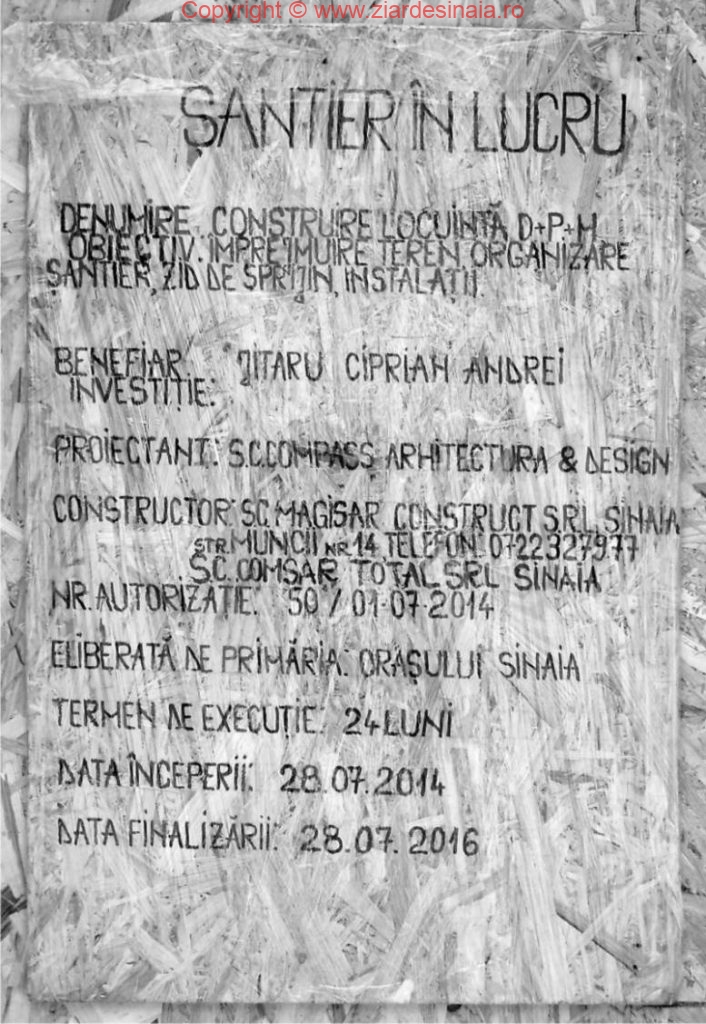 Copyright © www.ziardesinaia.ro
ȘANTIER ÎN LUCRU
DENUMIRE CONSTRUIRE LOCUINȚĂ D+P+M
OBIECTIV: IMPREJMUIRE TEREN ORGANIZARE
ȘANTIER, ZID DE SPRIJIN, INSTALAȚII.
BENEFIAR JITARU CIPRIAN ANDREI
INVESTIȚIE:
PROIECTANT: S.C.COMPASS ARHITECTURA & DESIGN
CONSTRUCTOR: S.C. MAGISAR CONSTRUCT S.R.L. SINAIA
STR. MUNCII NR. 14 TELEFON: 0722327977
S.C. COMSAR TOTAL SRL SINAIA
NR. AUTORIZAȚIE: 50 / 01-07-2014
ELIBERATĂ DE PRIMĂRIA: ORAȘULUI SINAIA
TERMEN DE EXECUȚIE: 24 LUNI
DATA ÎNCEPERII: 28.07.2014
DATA FINALIZĂRII: 28.07.2016